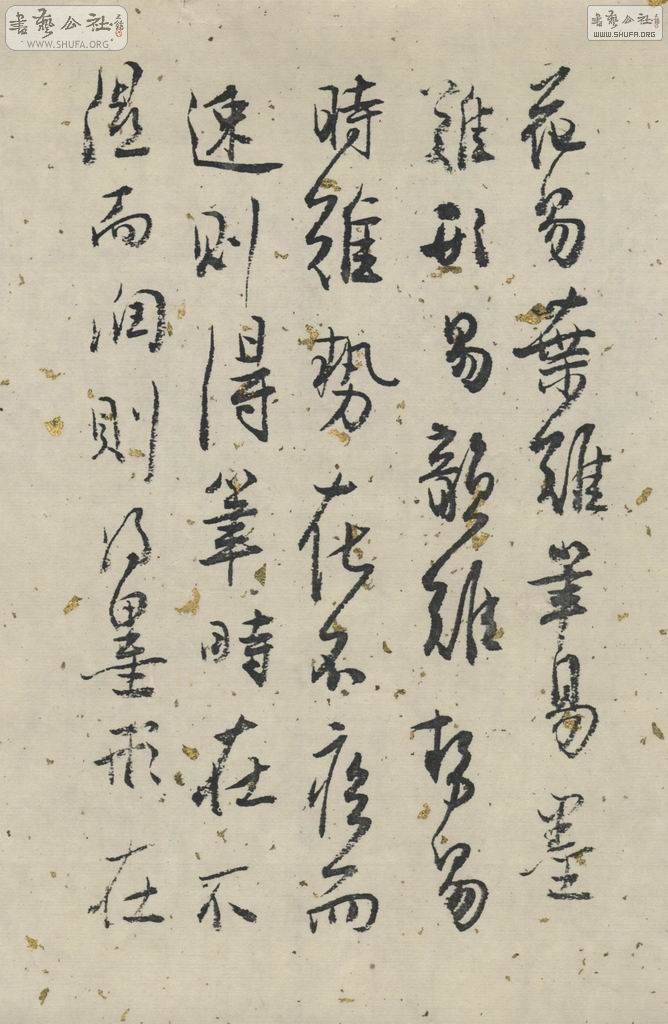 書藝公社
WWW.SHUFA.ORG
書藝公社
WWW.SHUFA.ORG
花易葉難筆易墨
難形易韻難勢易
時難勢在不疾而
速則得筆時在不
濕而潤則得墨形在